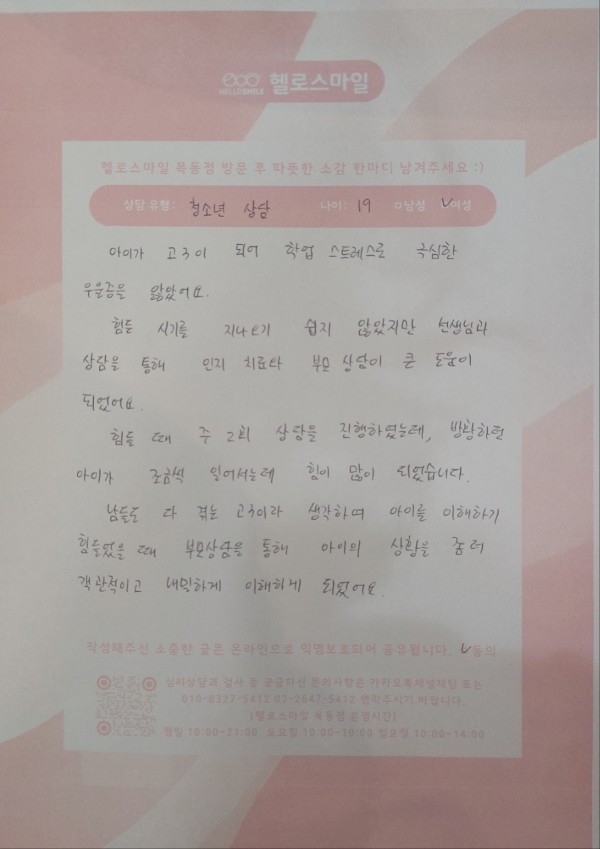 HELLOSMILE 헬로스마일
헬로스마일 목동점 방문 후 따뜻한 소감 한마디 남겨주세요 :)
상담 유형: 청소년 상담 나이: 19 □남성 V여성
아이가 고3이 되어 학업 스트레스로 극심한
우울증을 앓았어요.
힘든 시기를 지나오기 쉽지 않았지만 선생님과
상담을 통해 인지 치료와 부모 상담이 큰 도움이
되었어요.
힘들 때 주 2회 상담을 진행하였는데, 방황하던
아이가 조금씩 일어서는데 힘이 많이 되었습니다.
남들도 다 겪는 고3이라 생각하여 아이를 이해하기
힘들었을 때 부모상담을 통해 아이의 상황을 좀 더
객관적이고 내밀하게 이해하게 되었어요.
작성해주신 소중한 글은 온라인으로 익명보호되어 공유됩니다. V동의
심리상담과 검사 등 궁금하신 문의사항은 카카오톡채널채팅 또는
010-8327-5412 02-2647-5412 연락주시기 바랍니다.
[헬로스마일 목동점 운영시간]
평일 10:00-21:00 토요일 10:00-19:00 일요일 10:00-14:00